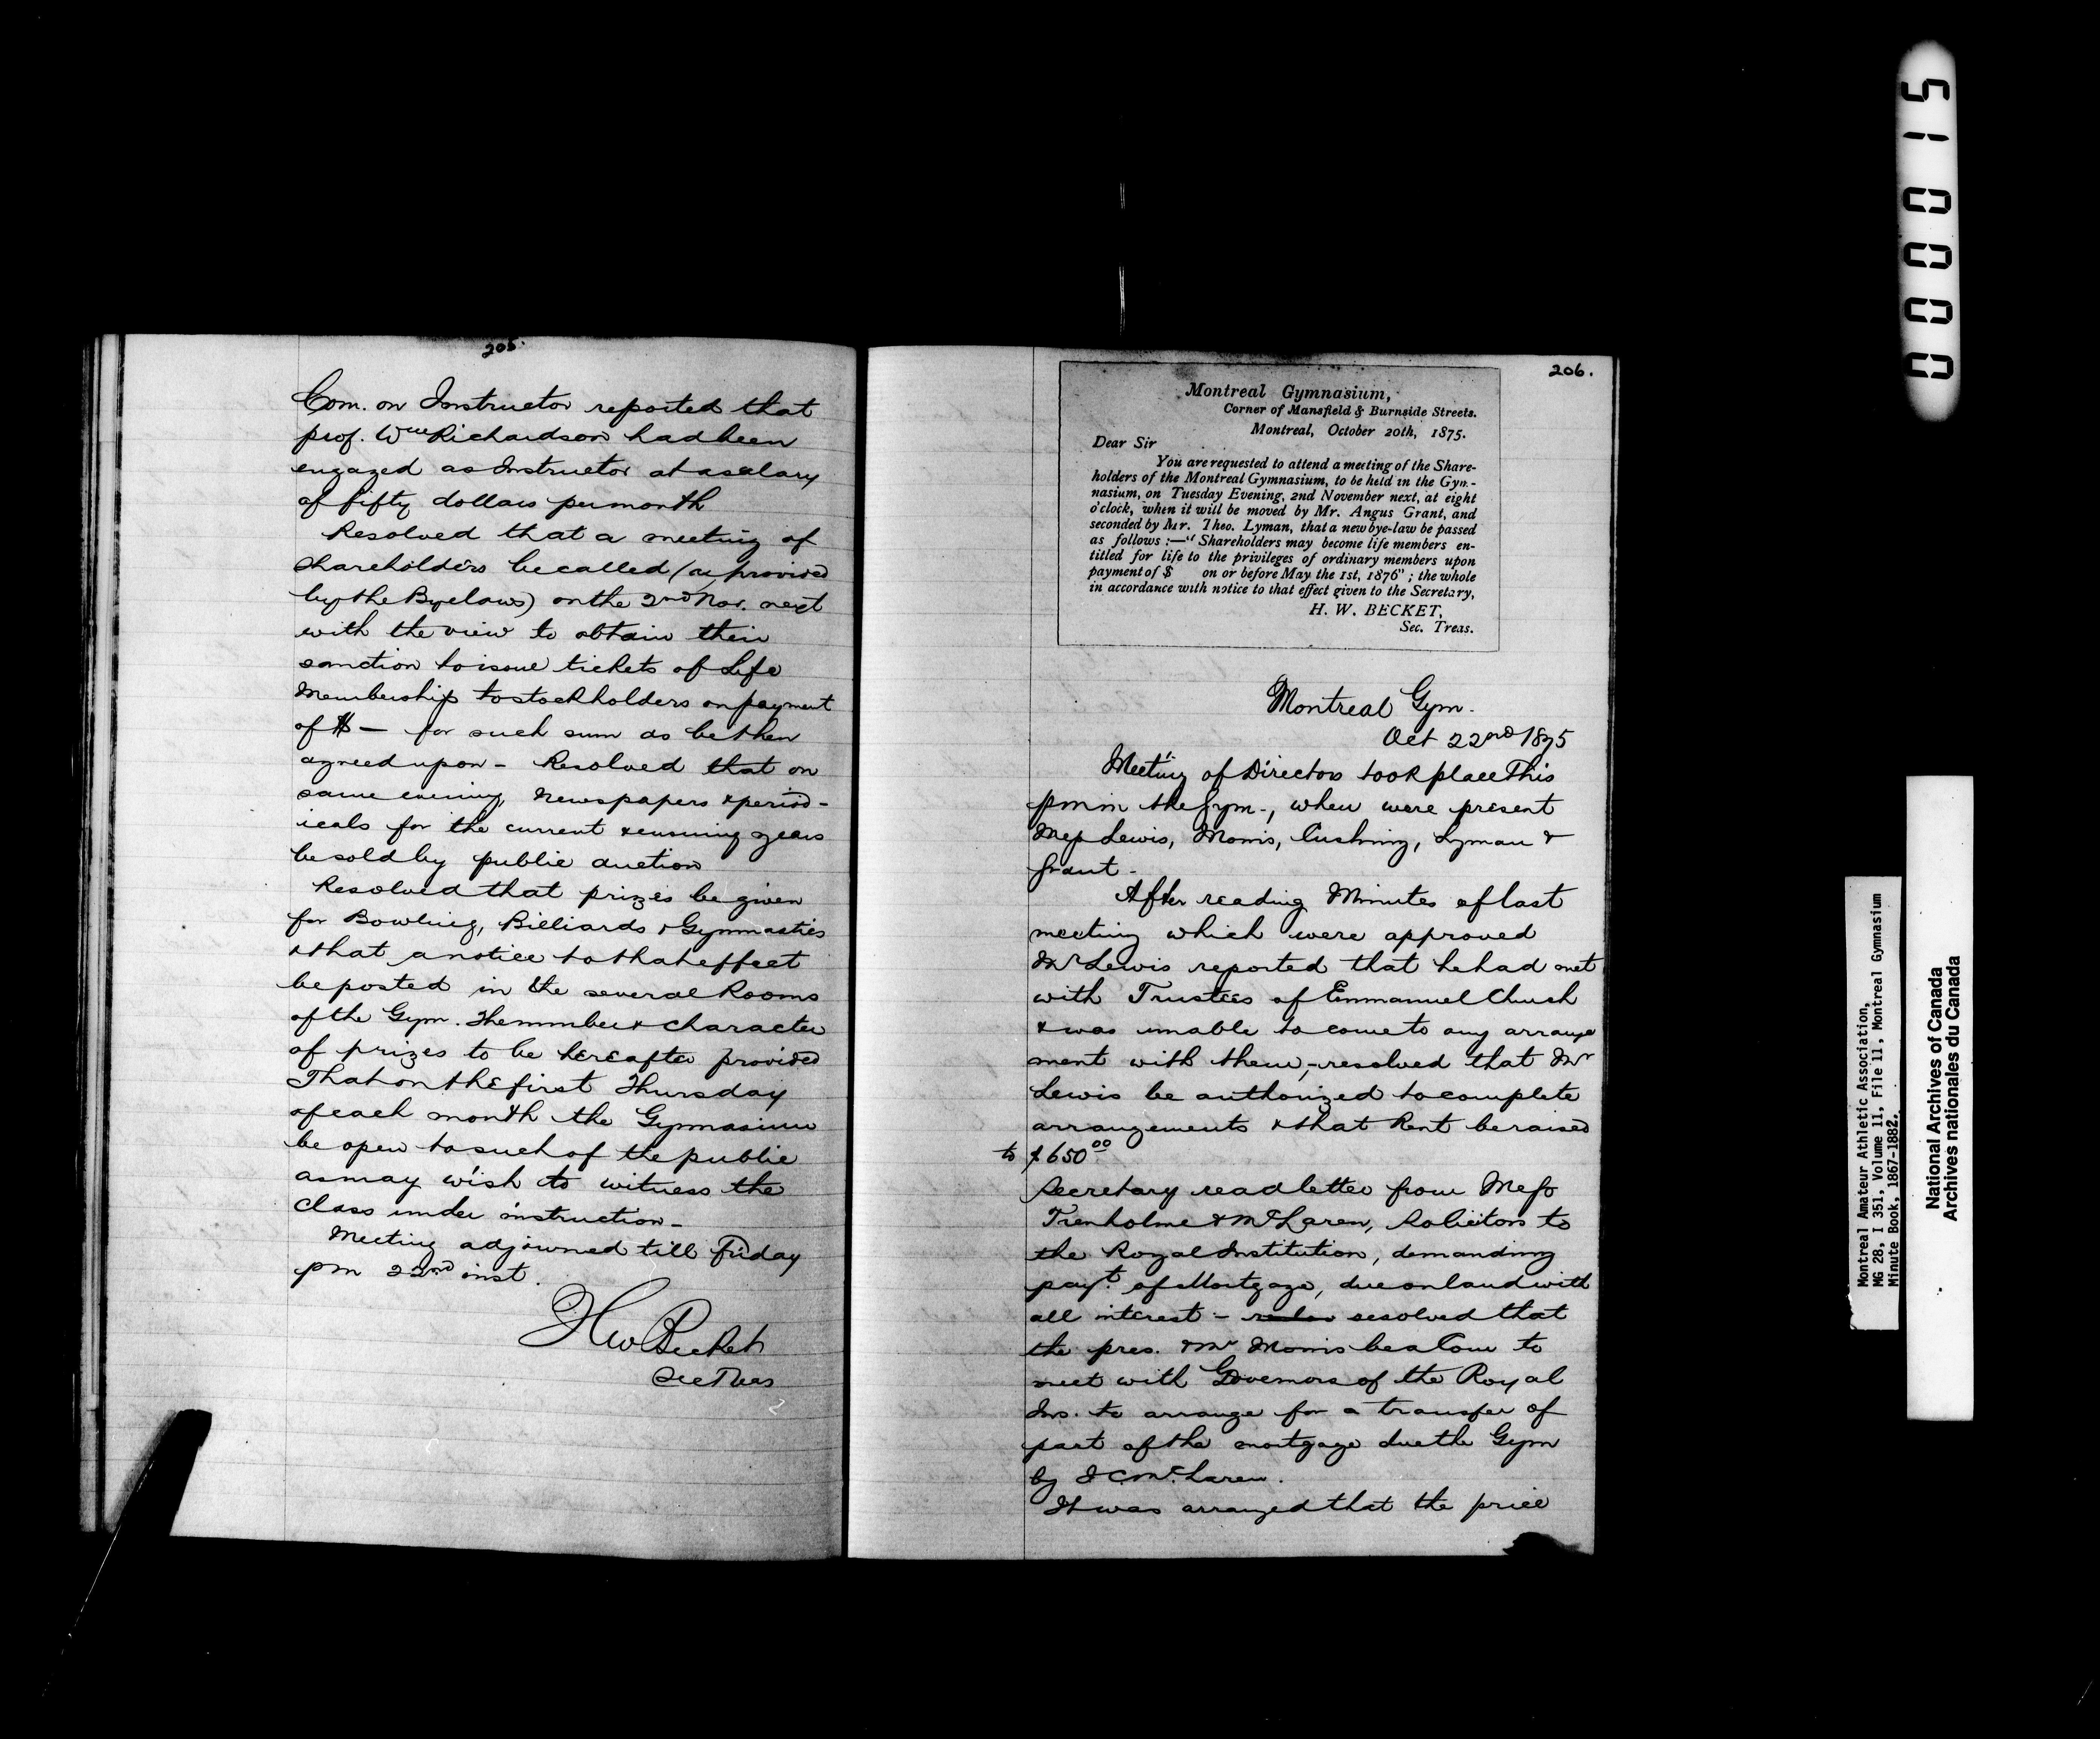 205.
Com. on Instructor reported that
prof. Wm Richardson had been
engaged as Instructor at a salary
of fifty dollars per month
Resolved that a meeting of
shareholders be called (as provided
by the Byelaws) on the 2nd Nov. next
with the view to obtain their
sanction to issue tickets of Life
Membership to stockholders on payment
of $ — for such sum as be then
agreed upon - Resolved that on
same evening, newspapers & period-
icals for the current & ensuing years
be sold by public auction
Resolved that prizes be given
for Bowling, Billiards & Gymnastics
& that a notice to that effect
be posted in the several Rooms
of the Gym. The number & character
of prizes to be hereafter provided
That on the first Thursday
of each month the Gymnasium
be open to such of the public
as may wish to witness the
Class under instruction -
Meeting adjourned till Friday
pm 22nd inst.
HW Becket
Sec Treas
206.
Montreal Gymnasium,
Corner of Mansfield & Burnside Streets.
Montreal, October 20th, 1875.
Dear Sir
You are requested to attend a meeting of the Share-
holders of the Montreal Gymnasium, to be held in the Gym-
nasium, on Tuesday Evening, 2nd November next, at eight
o'clock, when it will be moved by Mr. Angus Grant, and
seconded by Mr. Theo. Lyman, that a new bye-law be passed
as follows :—" Shareholders may become life members en-
titled for life to the privileges of ordinary members upon
payment of $ on or before May the 1st, 1876" ; the whole
in accordance with notice to that effect given to the Secretary,
H. W. BECKET,
Sec. Treas.
Montreal Gym.
Oct 22nd 1875
Meeting of Directors took place this
pm in the Gym -, when were present
Mess Lewis, Morris, Cushing, Lyman &
Grant -
After reading Minutes of last
meeting which were approved
Mr Lewis reported that he had met
with Trustees of Emmanuel Church
& was unable to come to any arrange
ment with them, - resolved that Mr
Lewis be authorized to complete
arrangements & that Rent be raised
to $650 00
Secretary read letter from Messs
Trenholme & McLaren, Solicitors to
the Royal Institution, demanding
payt. of Mortgage, due on land with
all interest - resolved that
the pres. & Mr Morris be a Com to
meet with Governors of the Royal
Ins. to arrange for a transfer of
part of the mortgage due the Gym
by J C McLaren.
It was arranged that the price
51000
Montreal Amateur Athletic Association,
MG 28, I 351, Volume 11, File 11, Montreal Gymnasium
Minute Book, 1867-1882.
National Archives of Canada
Archives nationales du Canada